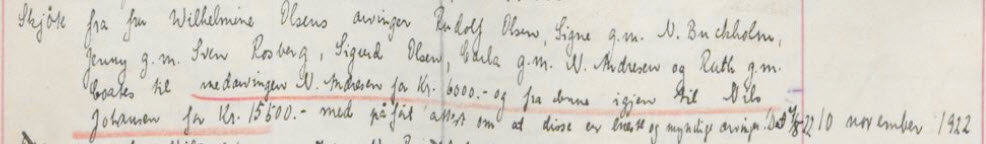 Skjöte fra fru Wilhelmine Olsens arvinger Rudolf Olsen, Signe g.m. N. Buckholm,
Jenny g.m. Sven Rosberg, Sigurd Olsen, Carla g.m. N. Andresen og Ruth g.m.
Coates til medarvingen N. Andresen for Kr. 6000.- og fra denne igjen til Nils
Johansen for Kr. 15500.- med påført attest om at disse er eneste og myndige arvinger. Dat. 10 november 1922